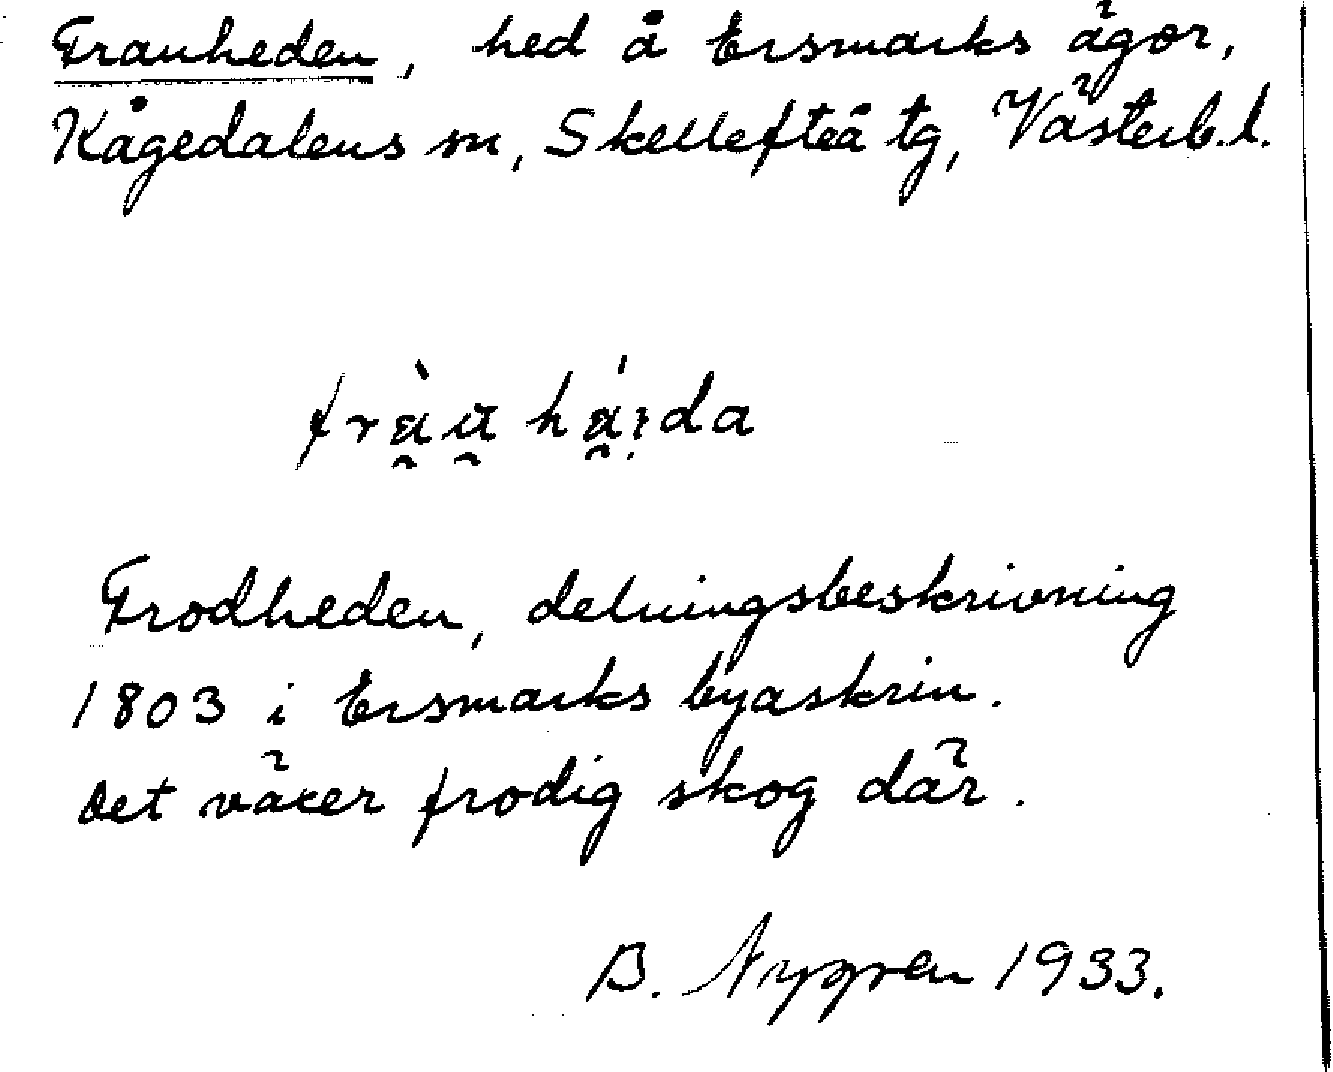 Frauheden, hed å Ersmarks ägor,
Kågedalens sn, Skellefteå tg, Västerb. l.
fràu̯ hái̯da
Frodheden, delningsbeskrivning
1803 i Ersmarks byaskrin.
Det växer frodig skog där.
B. Nygren 1933.